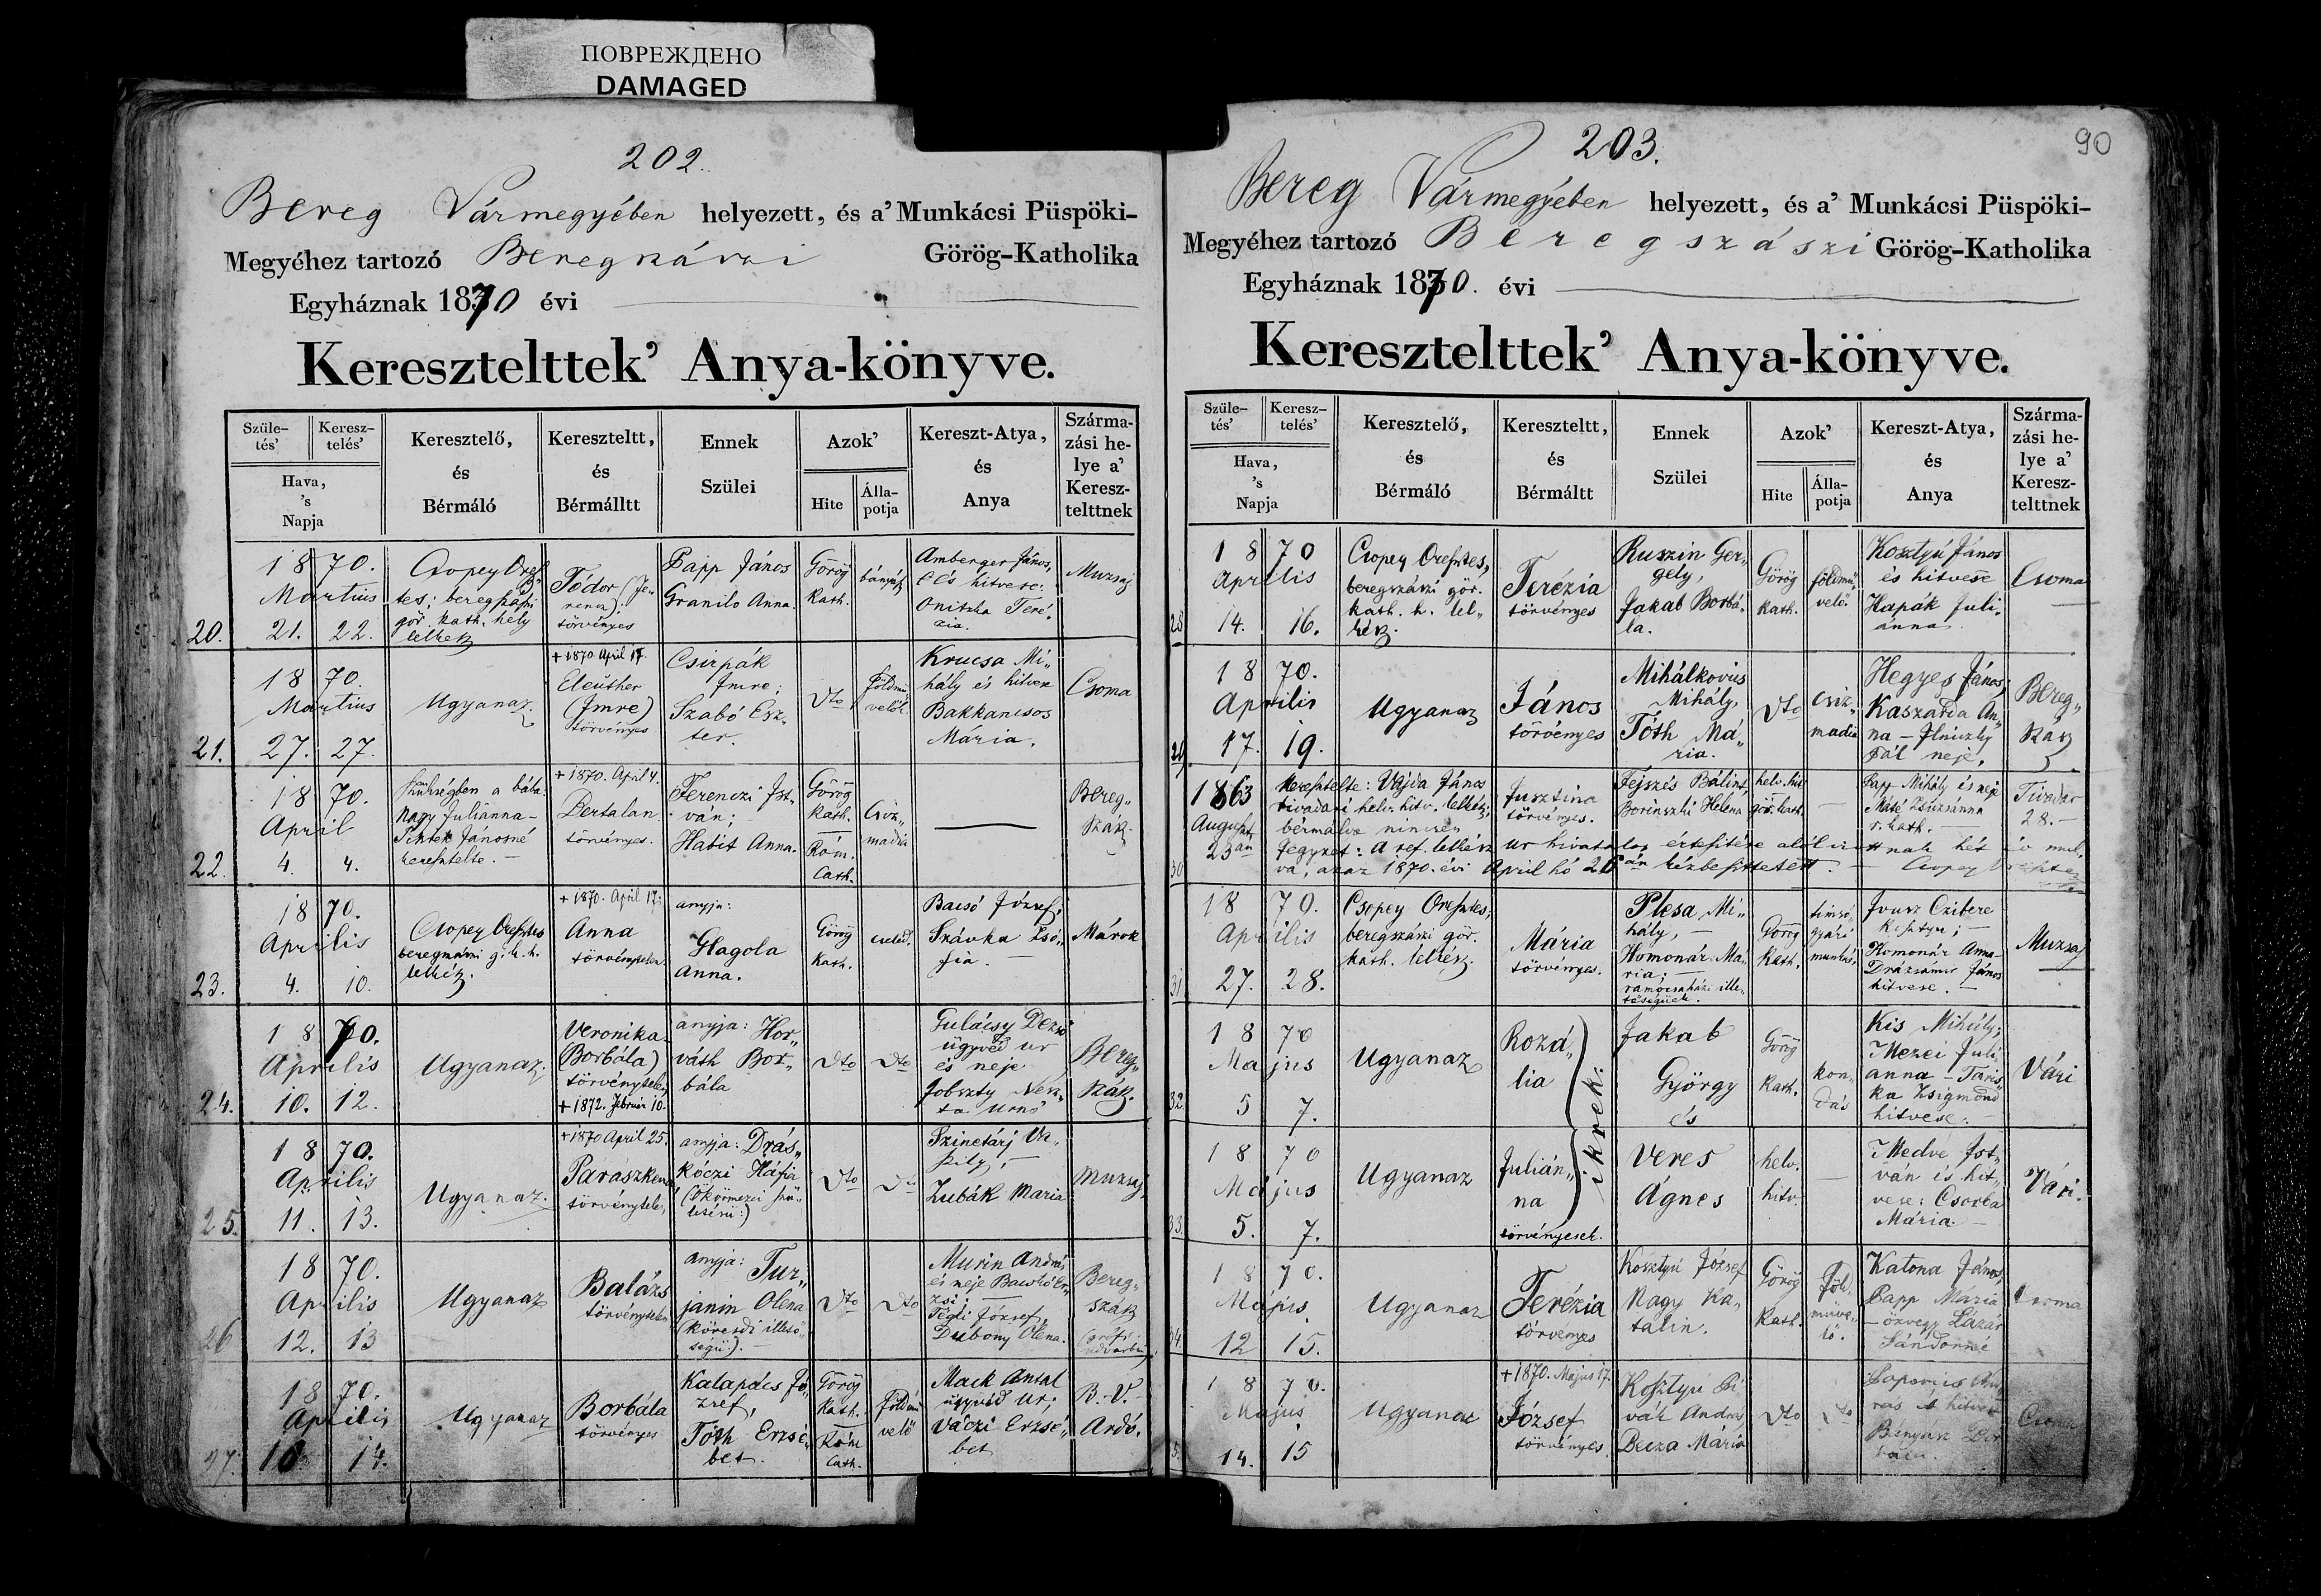 ПОВРЕЖДЕНО
DAMAGED
202.
Bereg Vármegyében helyezett, és a' Munkácsi Püspöki-
Megyéhez tartozó Beregszászi Görög-Katholika
Egyháznak 1870 évi
Keresztelttek' Anya-könyve.
Szüle-
tés'
Keresz-
telés'
Hava,
's
Napja
Keresztelő,
és
Bérmáló
Kereszteltt,
és
Bérmálltt
Ennek
Szülei
Azok'
Hite
Álla-
potja
Kereszt-Atya,
és
Anya
Szárma-
zási he-
lye a'
Keresz-
telttnek
20.
1870.
Martius
21. 22.
Csopey Oresz-
tes; beregszászi
gör. kath. hely
lelkész
Tódor
törvényes
Papp János
Granilo Anna.
Görög
kath.
bányász
Amberger János,
és hitvese:
Onitzka Teré-
zia.
Muzsaj
21.
1870.
Martius
27. 27.
Ugyanaz.
+ 1870 April 17.
Eleuther
(Imre)
törvényes
Csirpák
Imre;
Szabó Esz-
ter.
dto
földmű-
velők
Krucsa Mi-
hály és hitvese
Bakkancsos
Mária.
Csoma
22.
1870.
April
4. 4.
Szükségben a bába
Nagy Juliánna-
Jánosné
keresztelte. —
+ 1870. April 4.
Bertalan
törvényes.
Ferenczi Ist-
ván;
Habit Anna.
Görög
kath.
Róm.
Cath.
Csiz-
madia
—
Bereg-
szász.
23.
1870.
Aprilis
4. 10.
Csopey Oresztes
beregszászi g. k. h.
lelkész.
+ 1870. April 17.
Anna
törvénytelen
anyja:
Glagola
Anna.
Görög
Kath.
cseléd.
Bacsó József,
Szávka Zsó-
fia. —
Márok
24.
1870.
Aprilis
10. 12.
Ugyanaz.
Veronika
(Borbála)
törvénytelen
+ 1872. Február 10.
anyja: Hor-
váth Bor-
bála
dto
dto
Gulácsy Dezső
ügyvéd ur
és neje
Jobszty
Bereg-
szász.
25.
1870.
Aprilis
11. 13.
Ugyanaz.
+ 1870 April 25.
Paraszkeva
törvénytelen
anyja: Drás-
kóczi Háfia
(ökörmezei szü-
letésű:)
dto
dto
Szinetárj Va-
szily, —
Zubák Maria
Muzsaj
26
1870.
Aprilis
12. 13
Ugyanaz
Balázs
törvénytelen
anyja: Tur-
janin Olena
(kövesdi illető-
ségü:). —
dto
dto
Murin András
és neje
József,
Dubony Olena.
Bereg-
szász
27.
1870.
Aprilis
10 14.
Ugyanaz
Borbála
törvényes
Kalapács Jó-
zsef,
Tóth Erzsé-
bet.
Görög
Kath.
Róm
Cath.
földmű
velő
Mack Antal
ügyvéd ur;
Váczi Erzsé-
bet
B.-V.-
Ardó.
203.
90
Bereg Vármegyében helyezett, és a' Munkácsi Püspöki-
Megyéhez tartozó Beregszászi Görög-Katholika
Egyháznak 1870. évi
Keresztelttek' Anya-könyve.
Szüle-
tés'
Keresz-
telés'
Hava,
's
Napja
Keresztelő,
és
Bérmáló
Kereszteltt,
és
Bérmáltt
Ennek
Szülei
Azok'
Hite
Álla-
potja
Kereszt-Atya,
és
Anya
Szárma-
zási he-
lye a'
Keresz-
telttnek
28
1870
Aprilis
14. 16.
Csopey Oresztes,
beregszászi gör.
kath. h. lel-
kész.
Terézia
törvényes
Ruszin Ger-
gély,
Jakab Borbá-
la.
Görög
kath.
földmű-
velő.
Kosztyú János
és hitvese
Hapák Juli-
ánna
Csoma
29.
1870.
Aprilis
17. 19.
Ugyanaz
János
törvényes
Mihálkovics
Mihály,
Tóth Má-
ria.
dto
csiz-
madia
Hegyes János,
Kaszarda An-
na — Ilniczky
Pál neje.
Bereg-
szász
30
1863
August
23án
Keresztelte: Vajda János
tivadari helv. hitv. lelkész;
bérmálva nincsen
Jusztina
törvényes.
Fejszés Bálint
Borinszki Helena
helv. hit
gör. kath.
—
Papp Mihály és neje
Máté Zsuzsánna
r. kath. —
Tivadar
28. —
Jegyzet: A ref. lelkész ur hivatalos értesítése
vá, azaz 1870. évi April hó 26án kézbesíttetett.
31
1870.
Aprilis
27. 28.
Csopey Oresztes,
beregszászi gör.
kath. lelkész.
Mária
törvényes.
Plesa Mi-
hály, —
Homonár Má-
ria; —
illető-
ségüek.
Görög
Kath.
timsó-
gyári
munkás.
Ivusz Czibere
—
Homonár Anna-
János
hitvese. —
Muzsaj
32.
1870
Majus
5 7.
Ugyanaz
Rozá-
lia
ikrek.
Jakab
György
és
Görög
Kath.
kon-
dás
Kis Mihály;
Mezei Juli-
anna —
ka Zsigmond
hitvese. —
Vári
33.
1870
Majus
5. 7.
Ugyanaz
Julián-
na
törvényesek.
Veres
Ágnes
helv.
hitv.
—
Medve Ist-
ván és hit-
vese: Csorba
Mária. —
Vári.
34.
1870.
Május
12 15.
Ugyanaz
Terézia
törvényes
Kosztyú József
Nagy Ka-
talin.
Görög
Kath.
Föld-
műve-
lő.
Katona János,
Papp Maria
— özvegy Lázár
Sándorné
Csoma
1870.
Majus
14. 15
Ugyanaz
+ 1870. Május 17.
József
törvényes.
Kosztyú Pi-
András
Decza Mária
dto
dto
és hitvese
Csoma